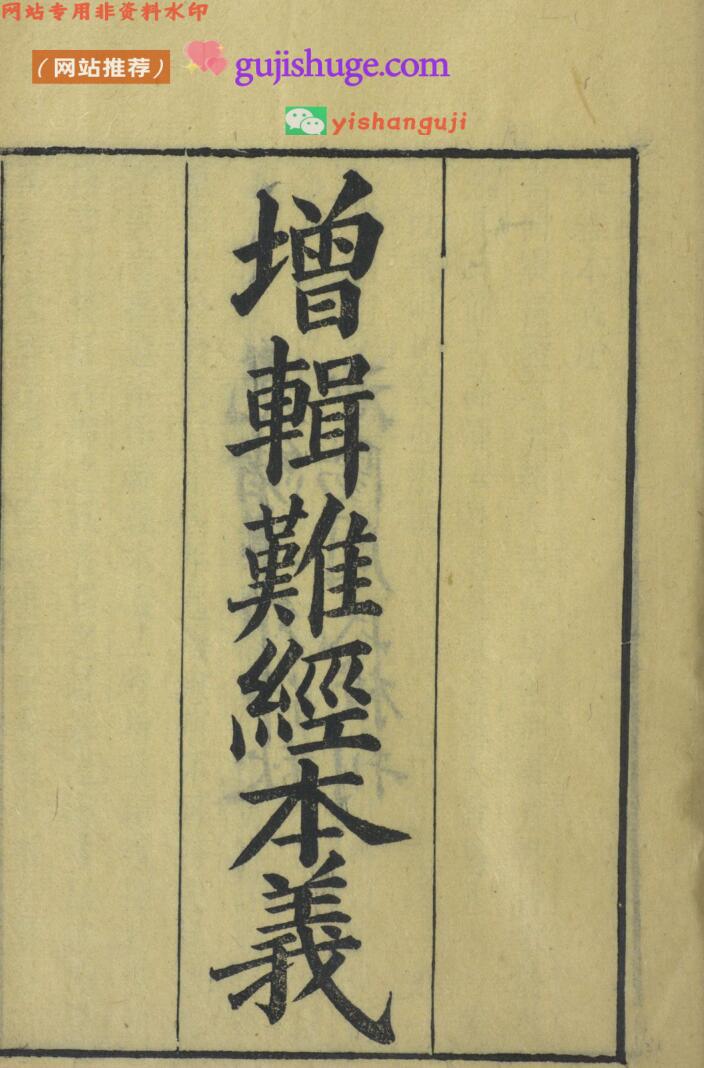 网站专用非资料水印
（网站推荐）
gujishuge.com
yishanguji
增輯難經本義